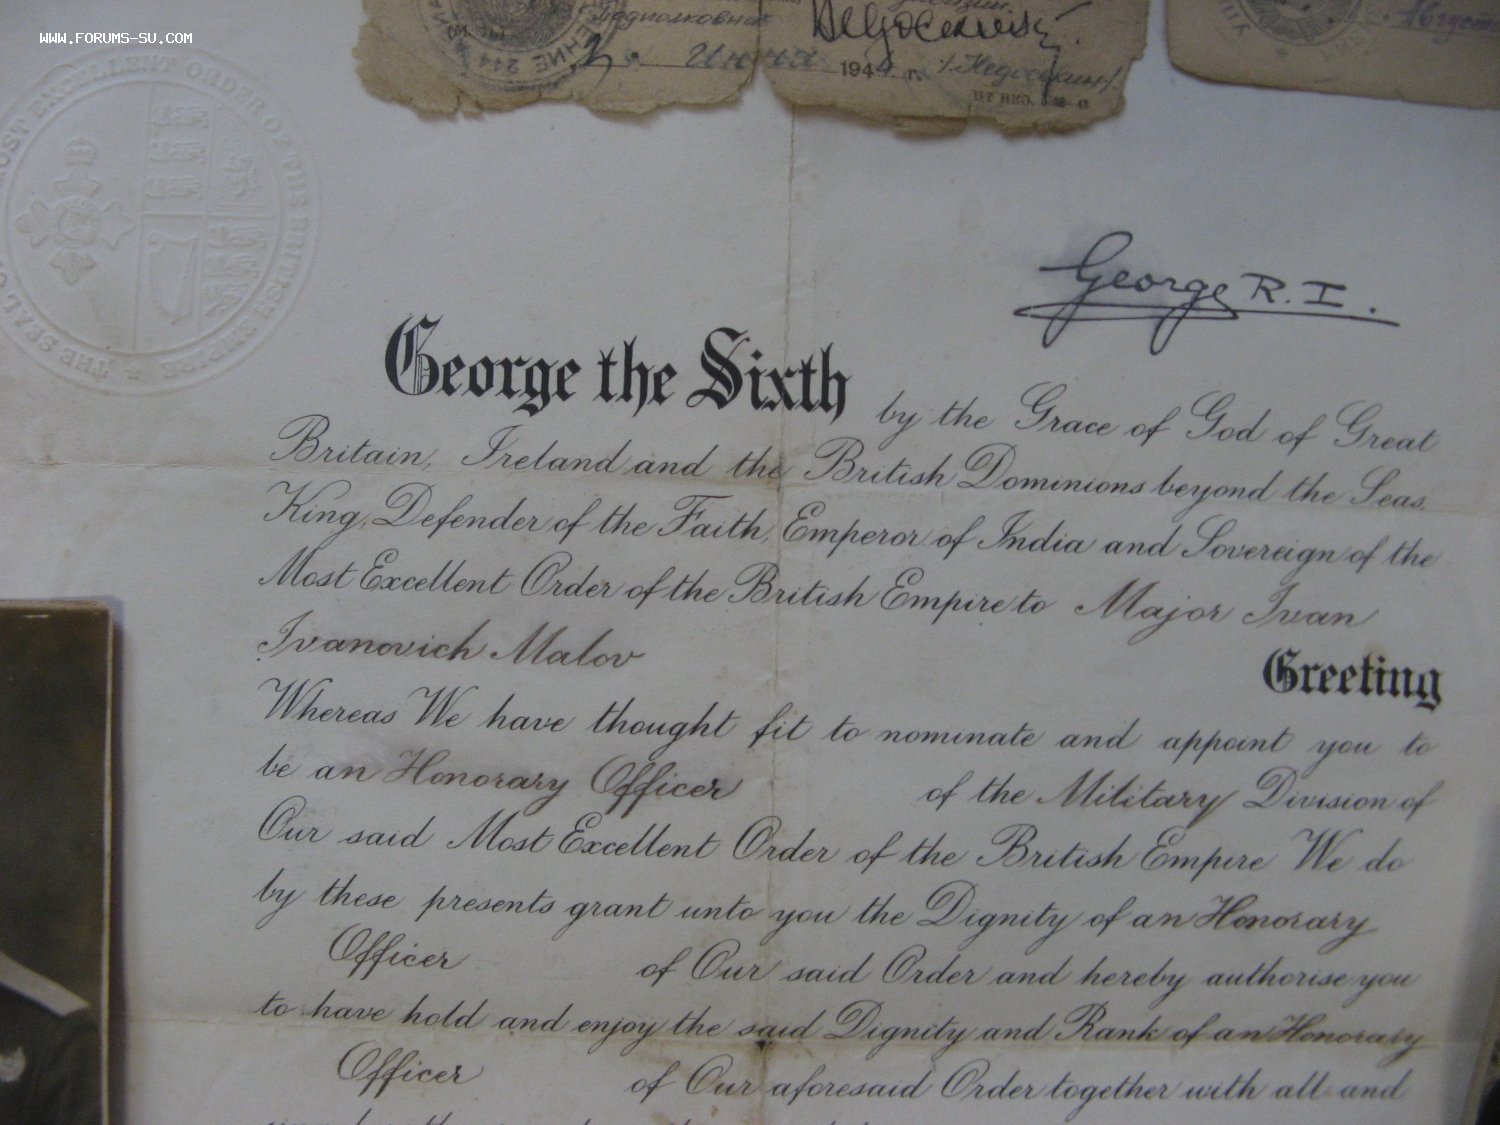 WWW.FORUMS-SU.COM
Подполковник
2. Июня 1944 г.
Август
George R. I.
George the Sixth by the Grace of God of Great
Britain, Ireland and the British Dominions beyond the Seas,
King, Defender of the Faith, Emperor of India and Sovereign of the
Most Excellent Order of the British Empire to Major Ivan
Ivanovich Malov
Greeting
Whereas We have thought fit to nominate and appoint you to
be an Honorary Officer of the Military Division of
Our said Most Excellent Order of the British Empire We do
by these presents grant unto you the Dignity of an Honorary
Officer of Our said Order and hereby authorise you
to have hold and enjoy the said Dignity and Rank of an Honorary
Officer of Our aforesaid Order together with all and
THE SEAL OF MOST EXCELLENT ORDER OF THE BRITISH EMPIRE